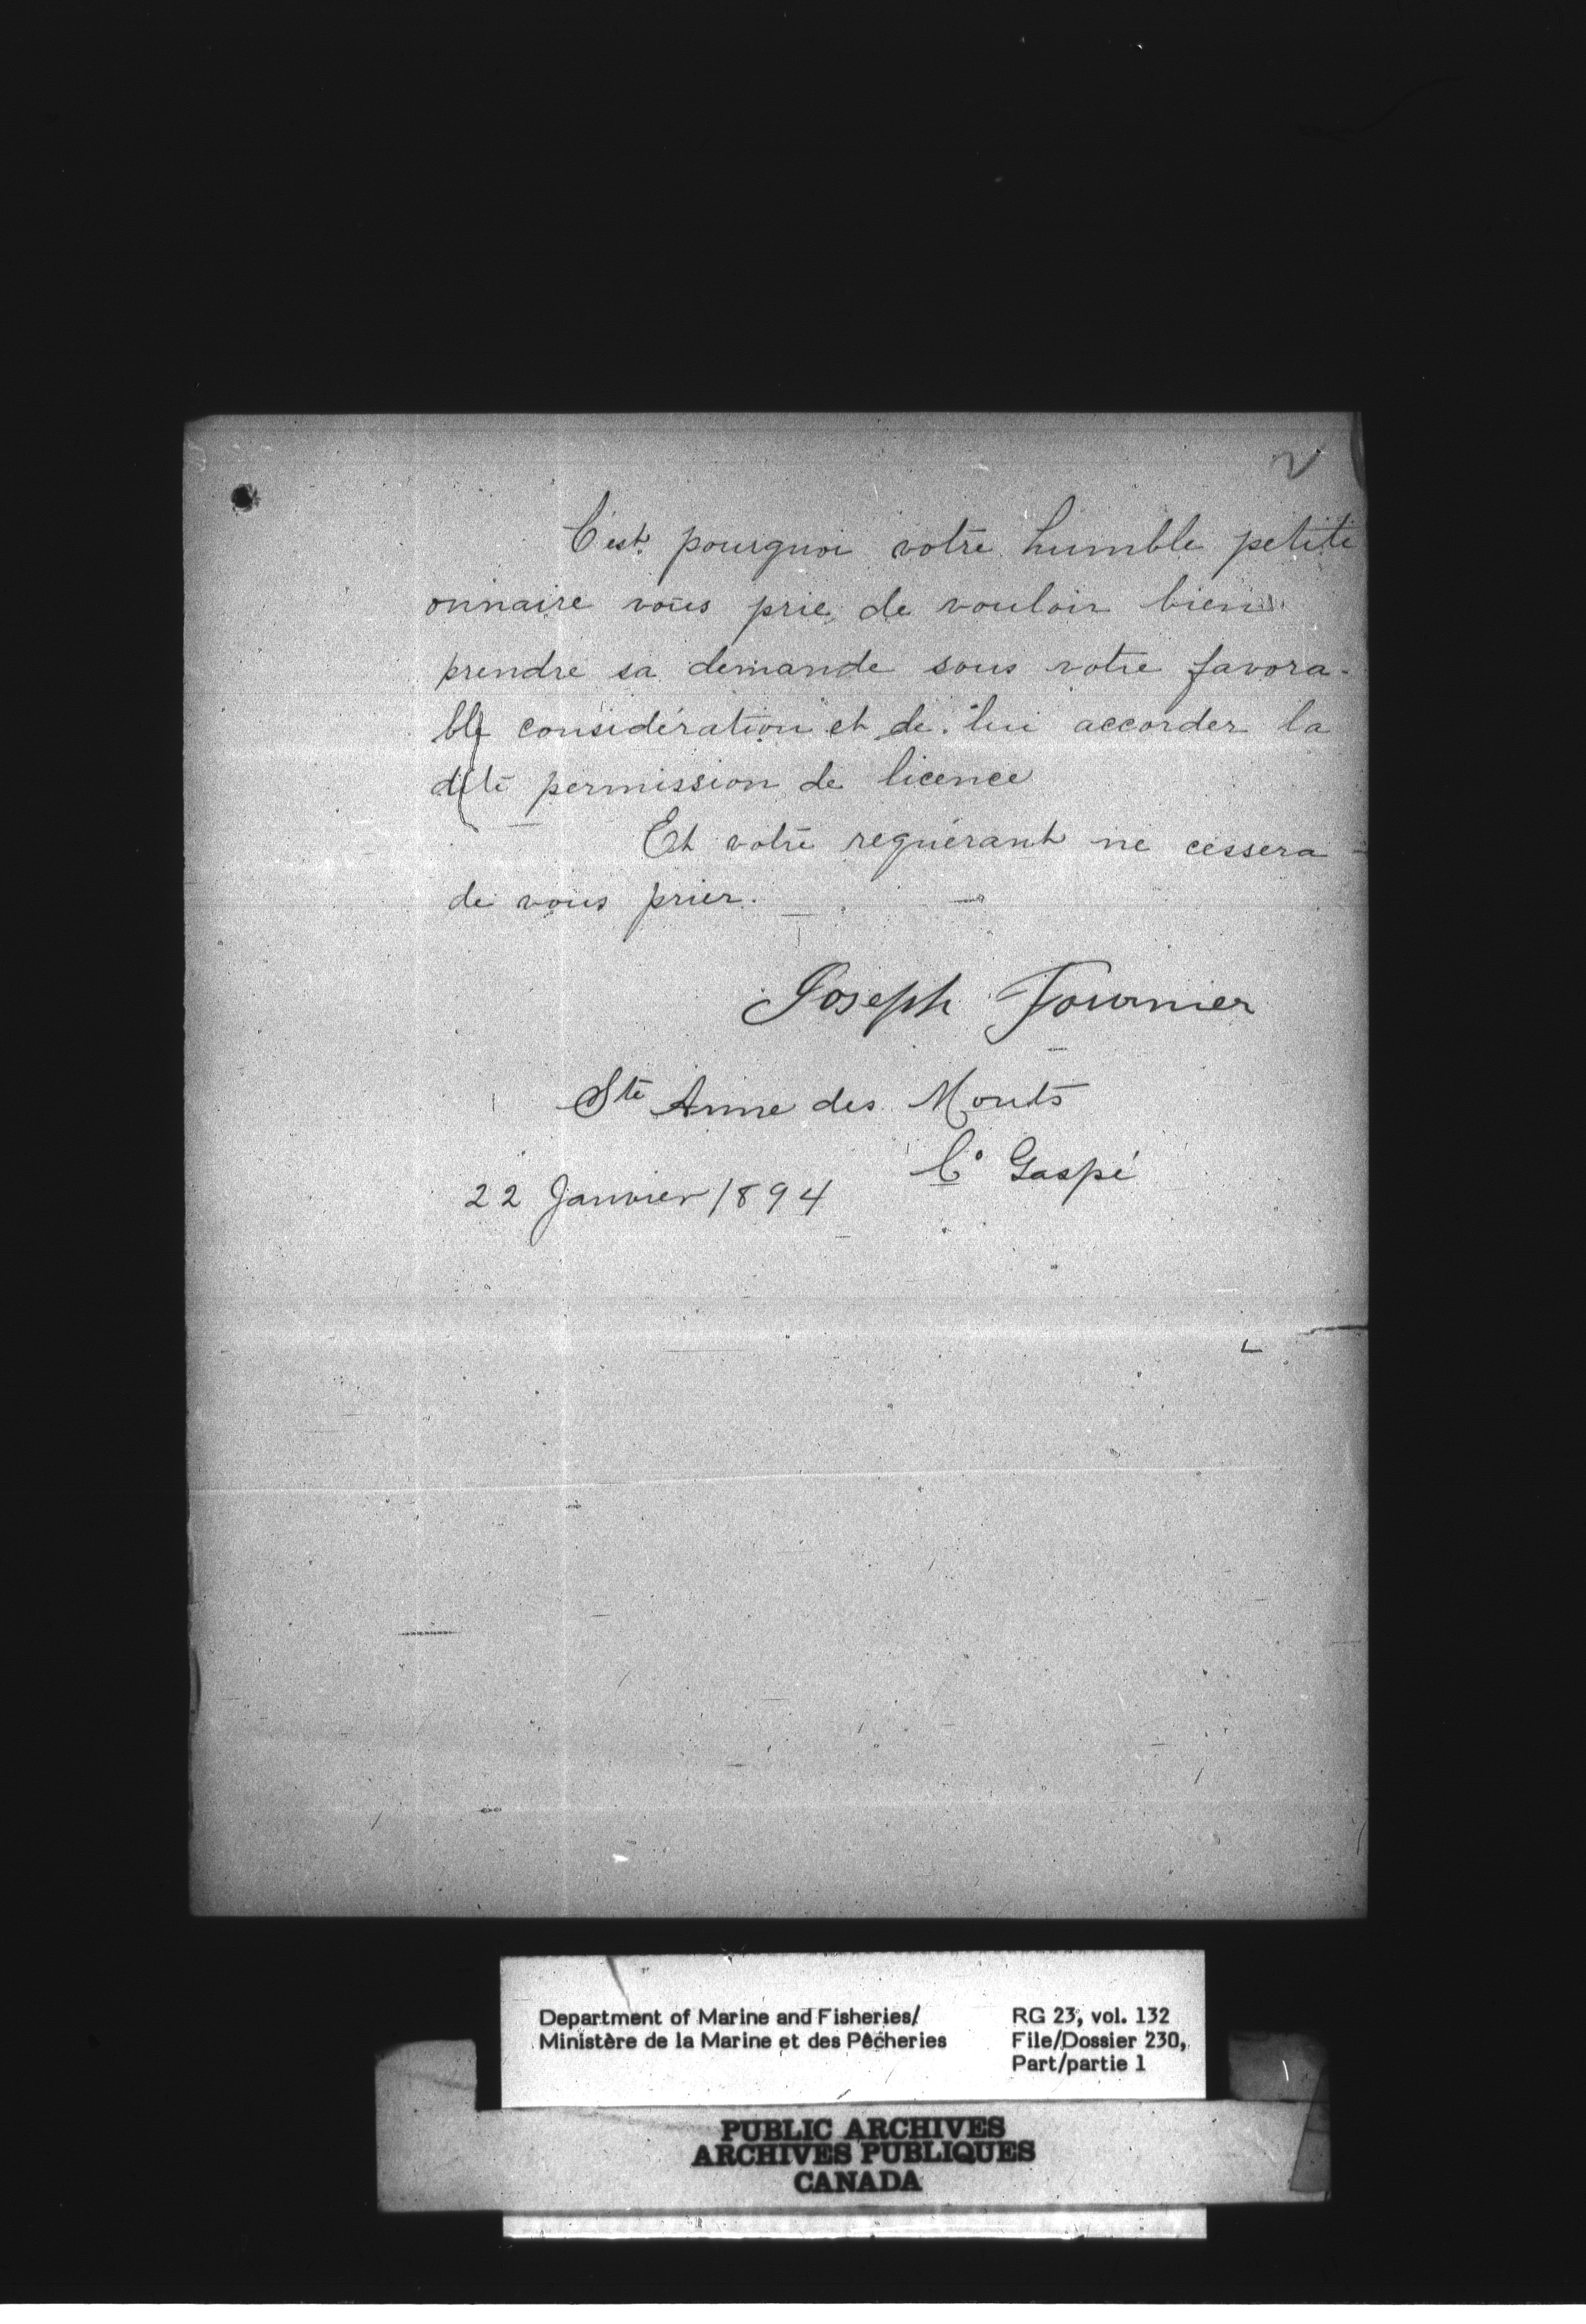 2
C'est pourquoi votre humble petiti
onnaire vous prie de vouloir bien
prendre sa demande sous votre favora-
ble considération et de lui accorder la
dite permission de licence
Et votre requérant ne cessera
de vous prier.
Joseph Fournier
Ste Anne des Monts
Co Gaspé
22 Janvier 1894
Department of Marine and Fisheries/
Ministère de la Marine et des Pêcheries
RG 23, vol. 132
File/Dossier 230,
Part/partie 1
PUBLIC ARCHIVES
ARCHIVES PUBLIQUES
CANADA